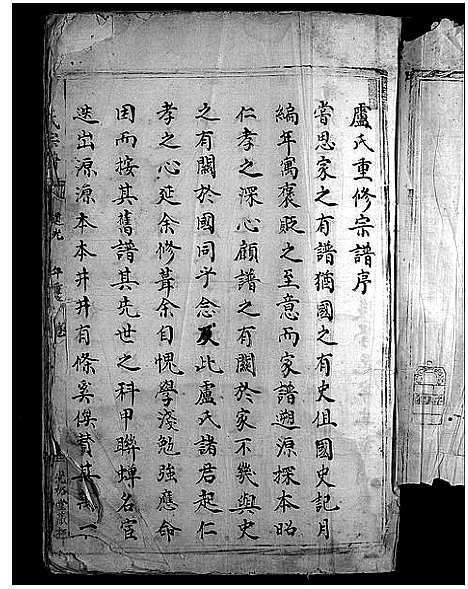 盧氏重修宗譜序
嘗思家之有譜猶國之有史但國史記月
編年寓褒貶之至意而家譜遡源探本昭
仁孝之深心顧譜之有關於家不幾與史
之有關於國同乎念及此盧氏諸君起仁
孝之心延余修葺余自愧學淺勉強應命
因而按其舊譜其先世之科甲聯蟬名宦
迭出源源本本井井有條奚俟贊其
氏宗譜
道光